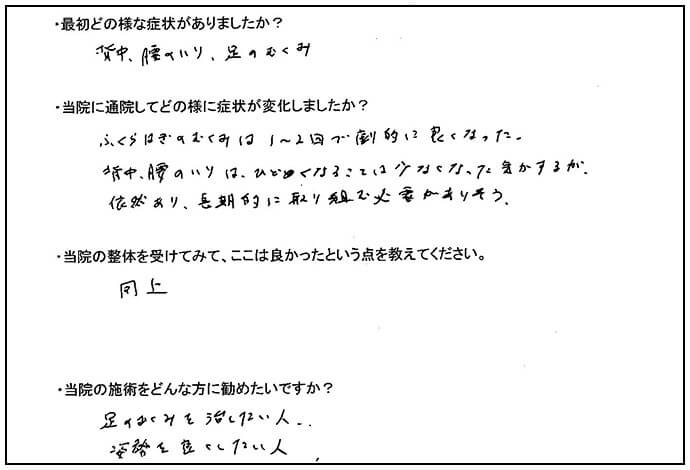 ・最初どの様な症状がありましたか？
背中、腰のハリ、足のむくみ
・当院に通院してどの様に症状が変化しましたか？
ふくらはぎのむくみは1〜2回で劇的に良くなった。
背中、腰のハリは、ひどめくなることは少なくなった気がするが、
依然あり、長期的に取り組む必要がありそう。
・当院の整体を受けてみて、ここは良かったという点を教えてください。
同上
・当院の施術をどんな方に勧めたいですか？
足のむくみを治したい人、
姿勢を良くしたい人